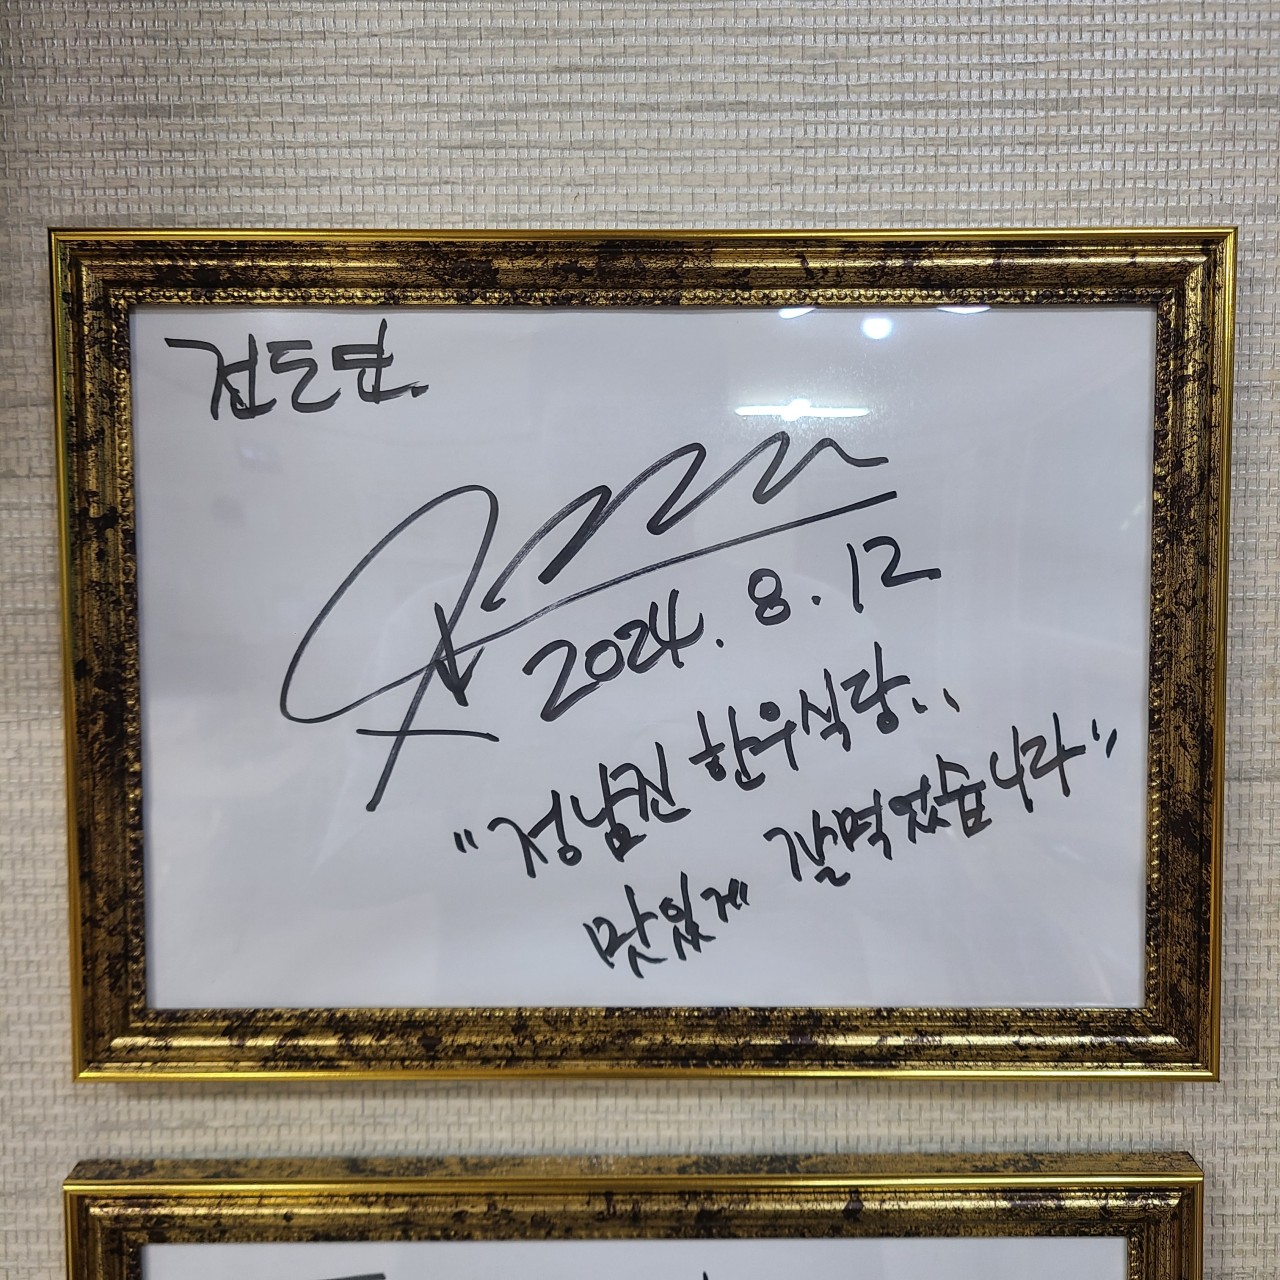 검도단.
2024. 8. 12
"정남진 한우식당..
맛있게 잘먹었습니다"